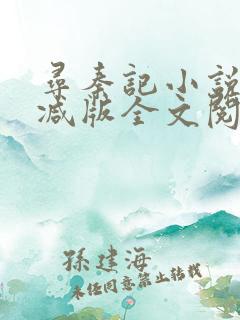 尋秦記小説
減版全文閱
孫建海
未經同意禁止轉載